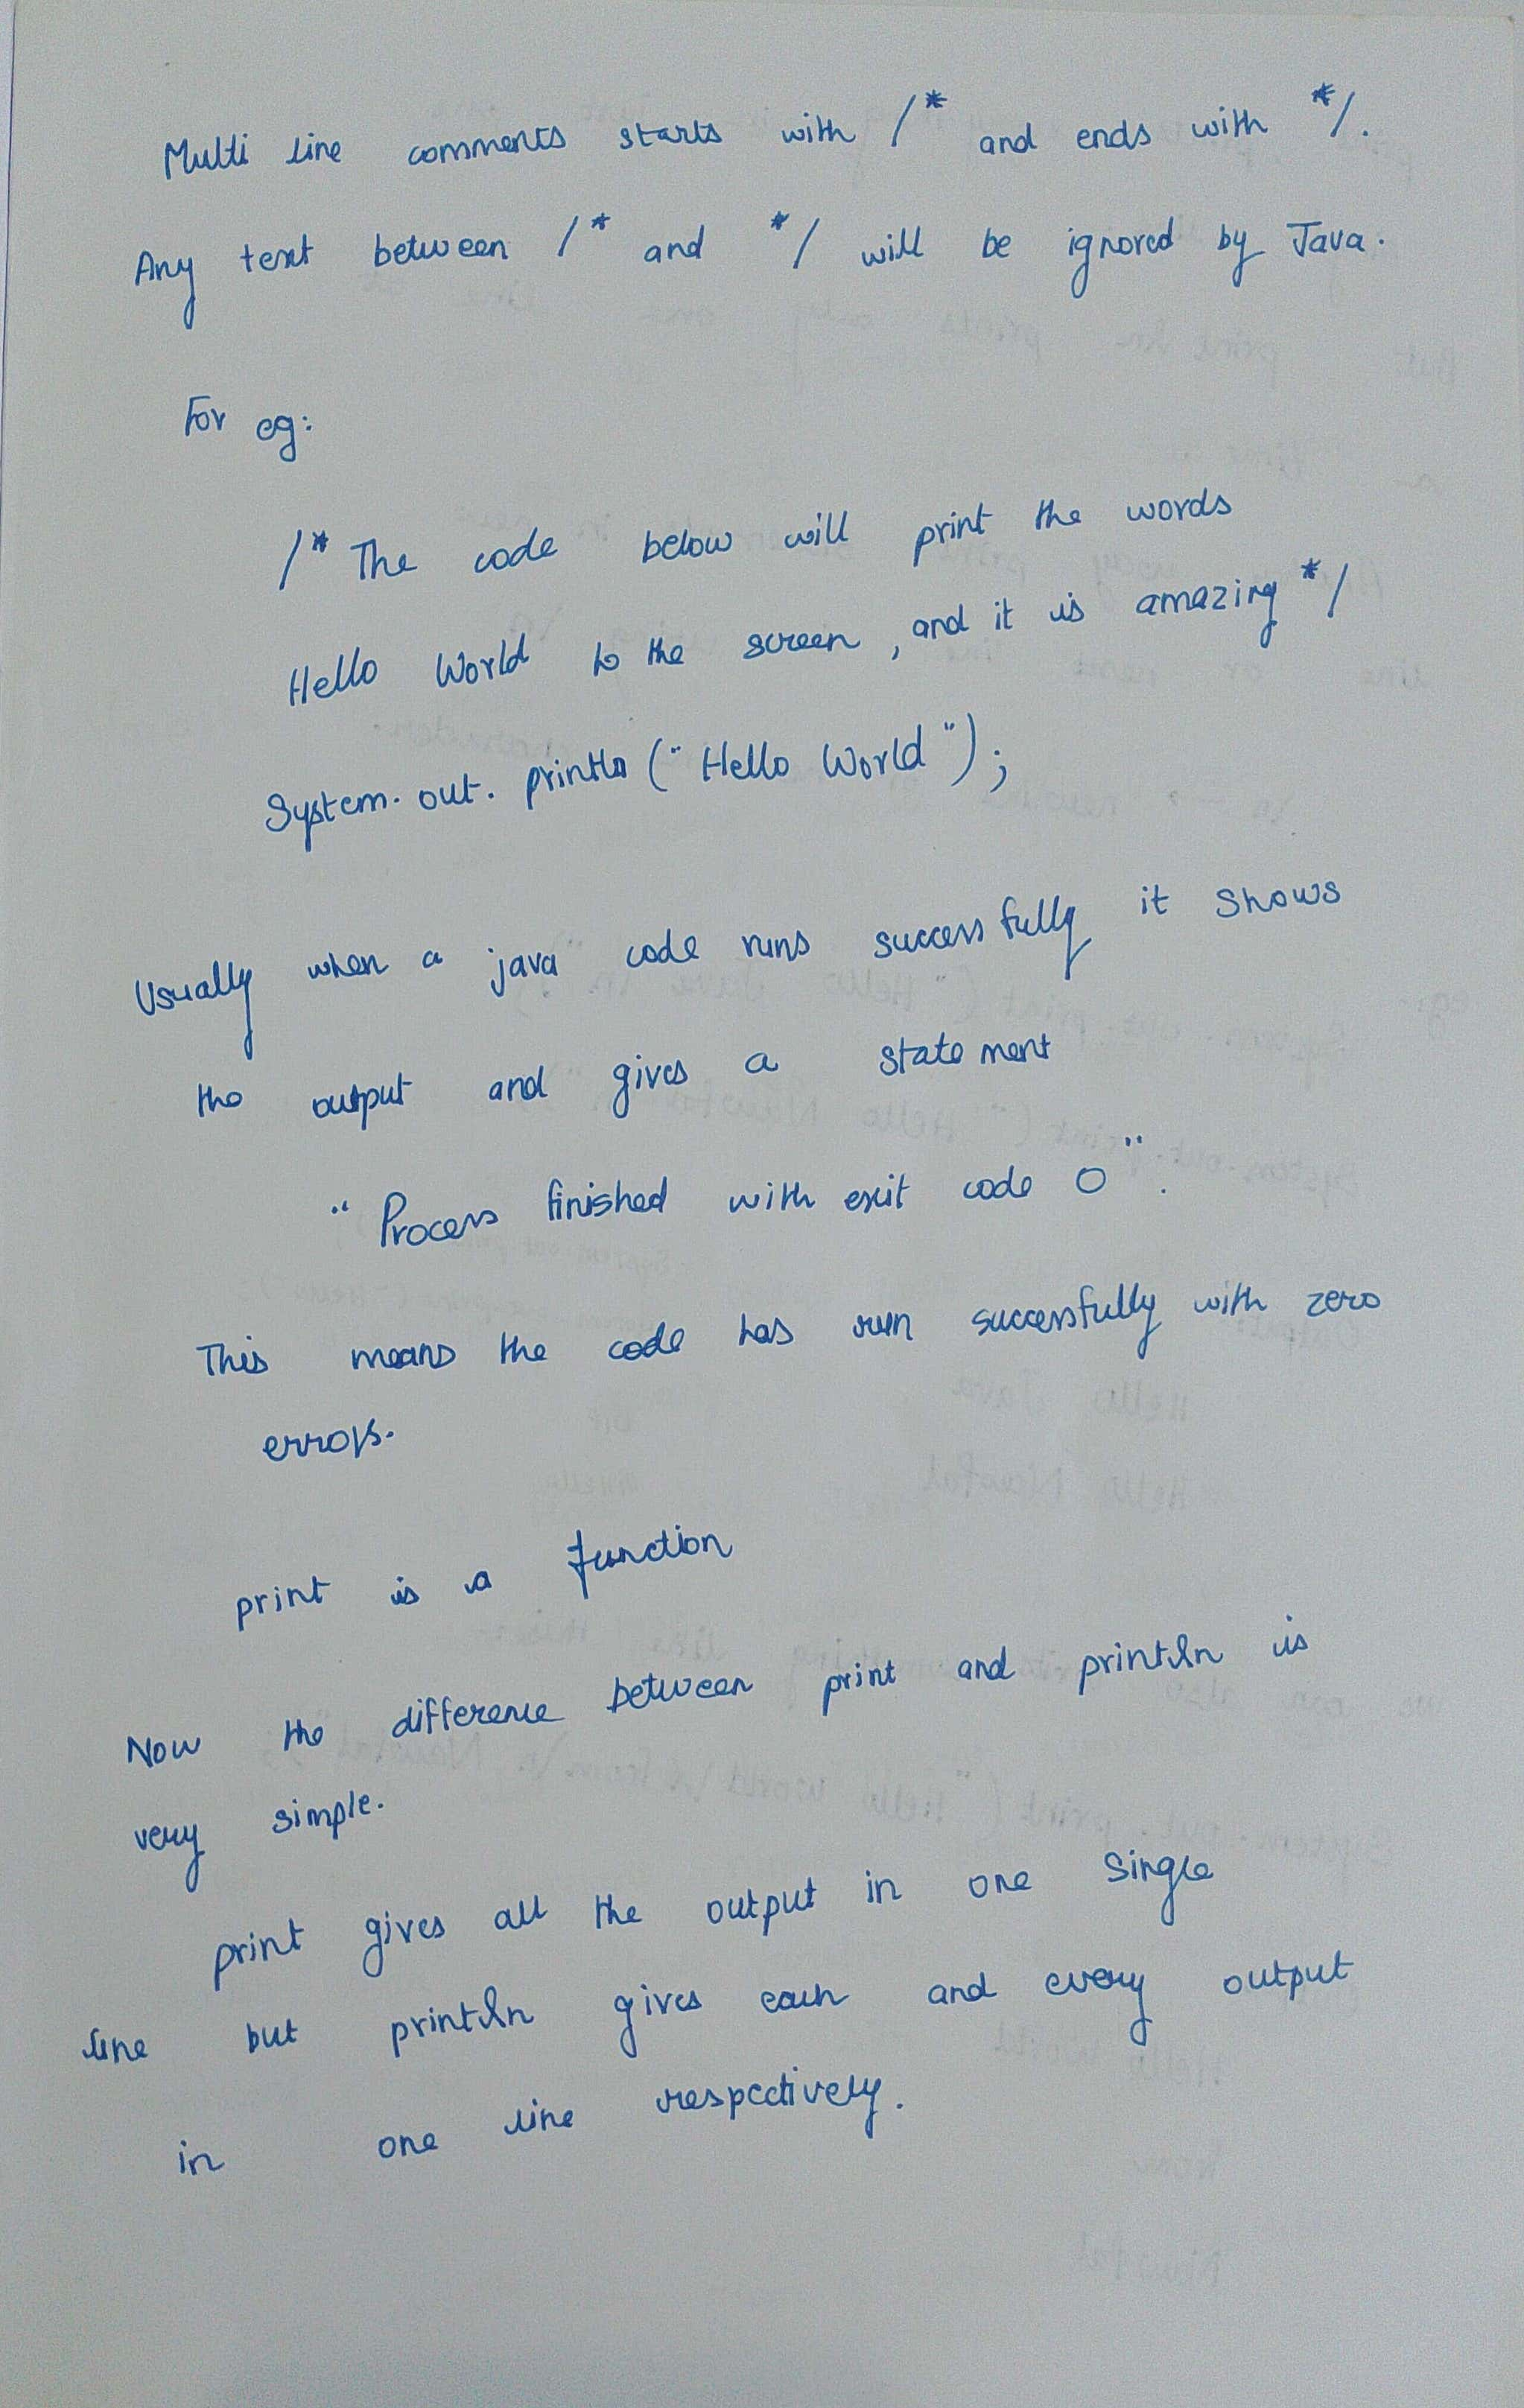 Multi line comments starts with /* and ends with */.
Any text between /* and */ will be ignored by Java.
For eg:
/* The code below will print the words
Hello World to the screen, and it is amazing */
System.out.println ("Hello World");
Usually when a java code runs successfully it shows
the output and gives a statement
"Process finished with exit code 0".
This means the code has run successfully with zero
errors.
print is a function
Now the difference between print and println is
very simple.
print gives all the output in one single
line but println gives each and every output
in one line respectively.